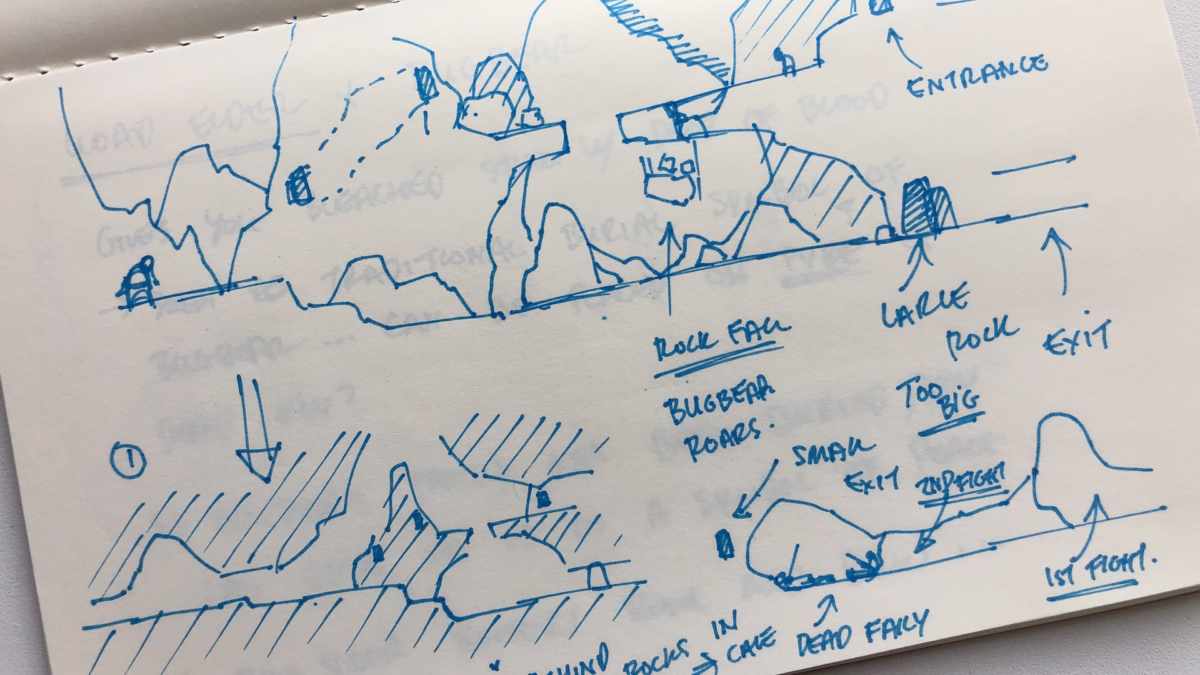 ENTRANCE
LARGE
ROCK
EXIT
ROCK FALL
BUGBEAR
ROARS.
TOO
BIG
SMALL
EXIT
2ND FIGHT
1
1ST FIGHT.
DEAD FAIRY
ROCKS IN
CAVE